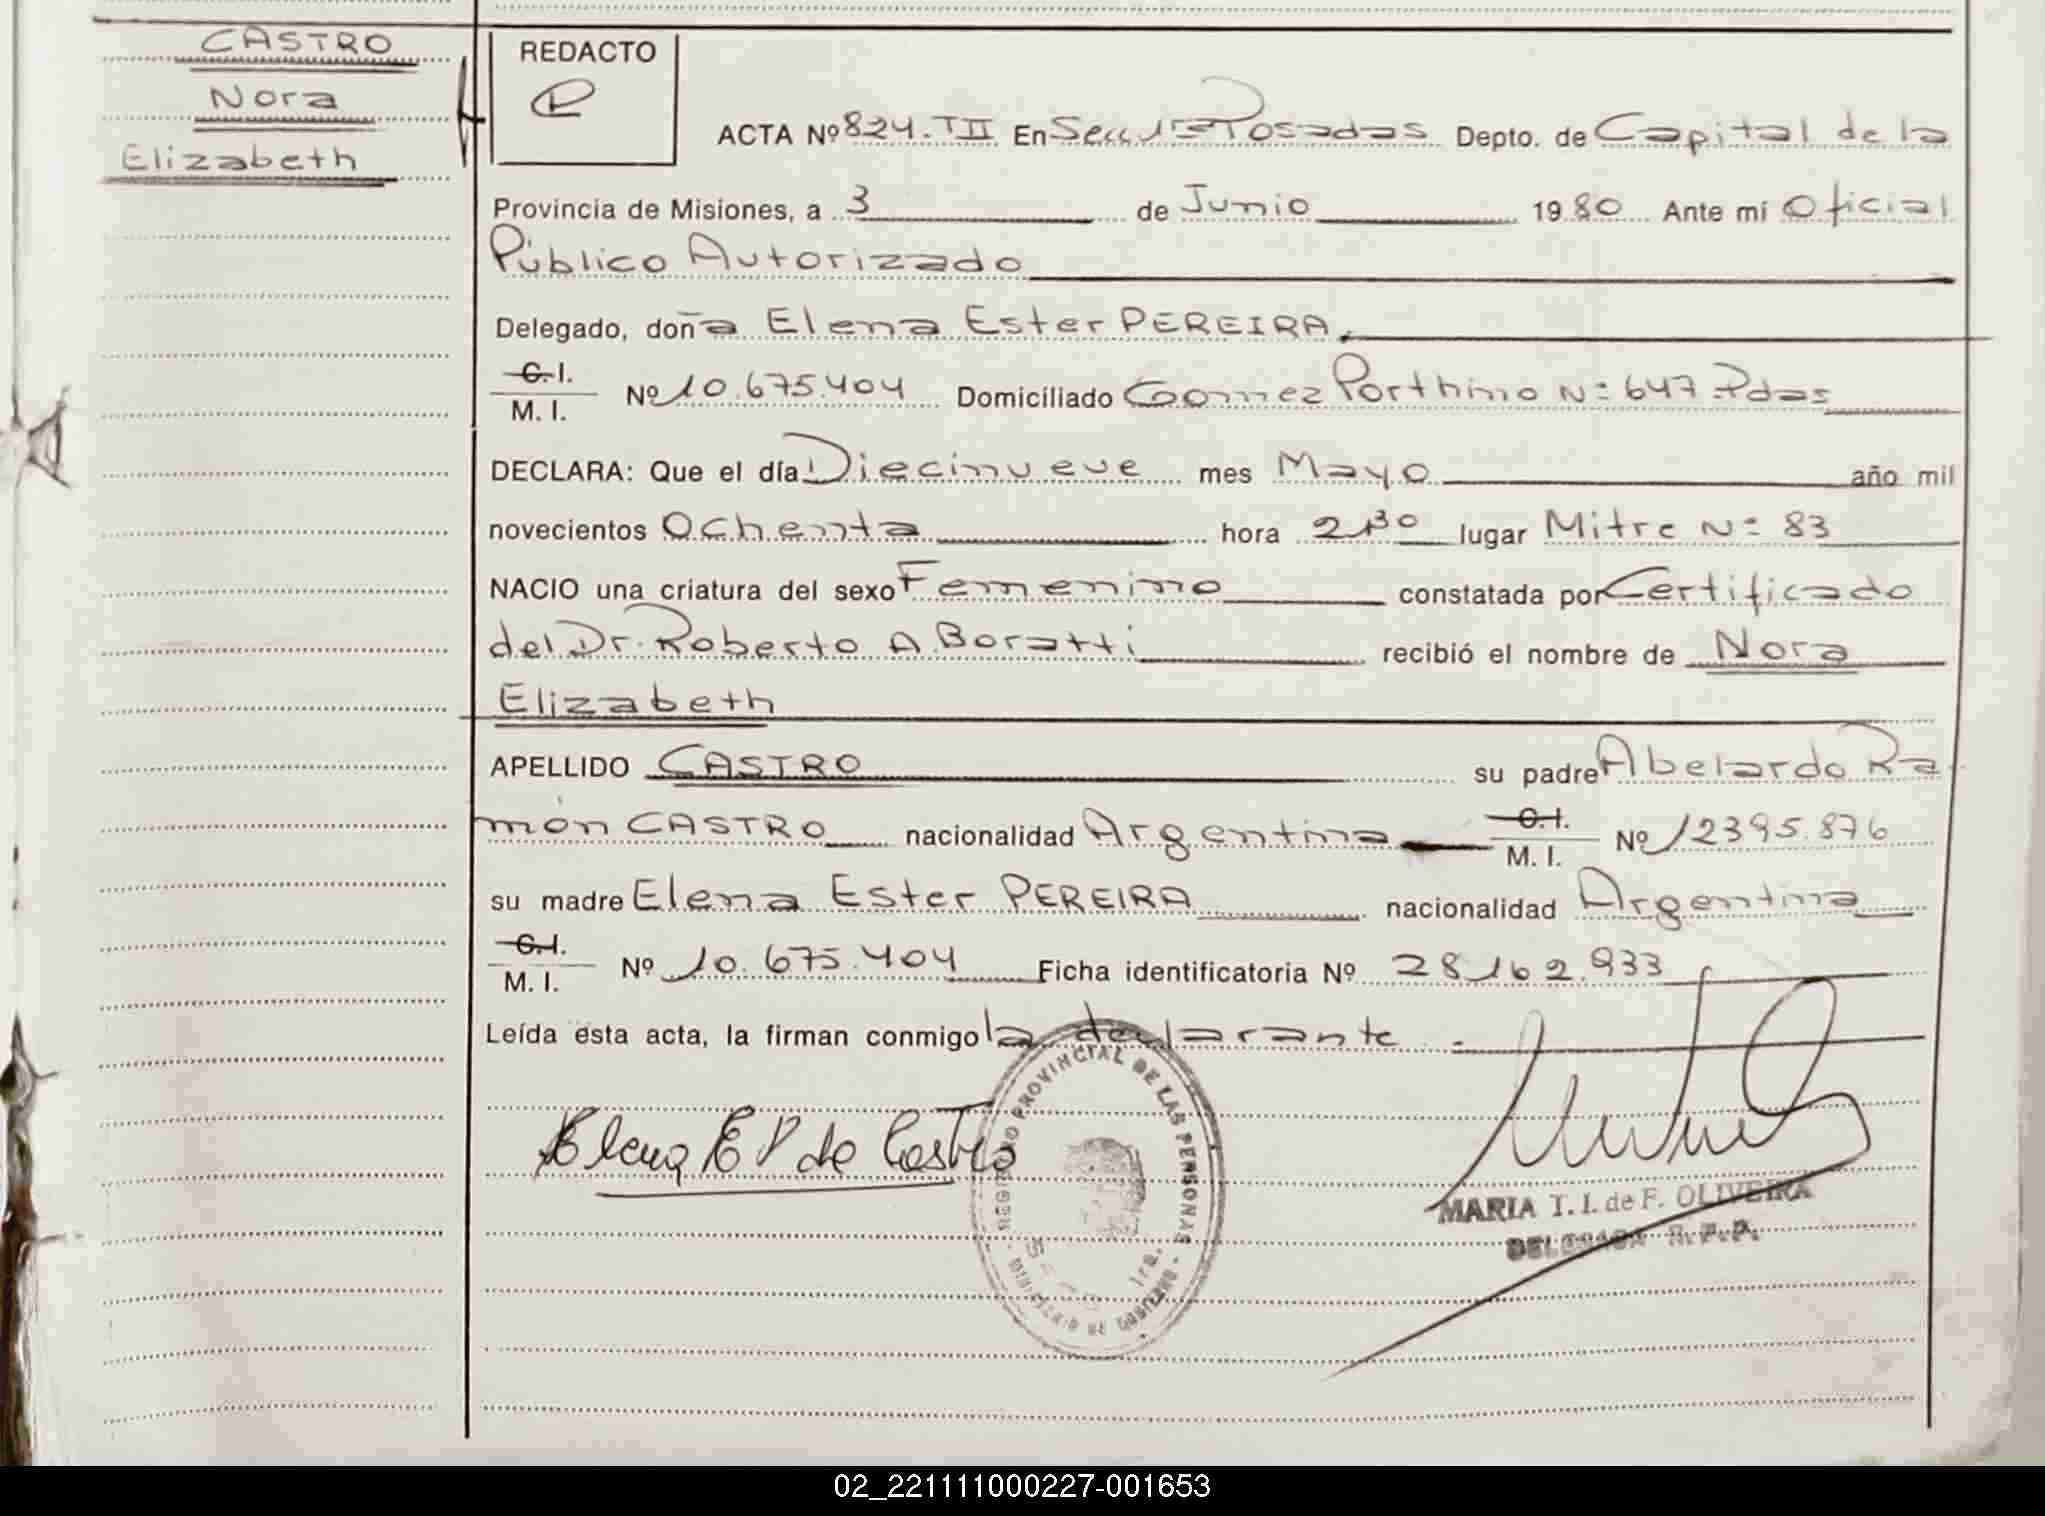 CASTRO
Nora
Elizabeth
REDACTO
ACTA Nº 824. TII En Secc 1ª Posadas Depto. de Capital de la
Provincia de Misiones, a 3 de Junio 1980 Ante mí Oficial
Público Autorizado
Delegado, doña Elena Ester PEREIRA.
C. I.
M. I. Nº 10.675.404 Domiciliado Gomez Porthino Nº 647 Pdas
DECLARA: Que el día Diecinueve mes Mayo año mil
novecientos Ochenta hora 2130 lugar Mitre Nº 83
NACIO una criatura del sexo Femenino constatada por Certificado
del Dr. Roberto A. Boratti recibió el nombre de Nora
Elizabeth
APELLIDO CASTRO su padre Abelardo Ra
món CASTRO nacionalidad Argentina C. I. M. I. Nº 12395.876
su madre Elena Ester PEREIRA nacionalidad Argentina
C. I.
M. I. Nº 10.675.404 Ficha identificatoria Nº 28162.933
Leída esta acta, la firman conmigo la declarante.
Elena E P de Castro
REGISTRO PROVINCIAL DE LAS PERSONAS
MINISTERIO DE GOBIERNO
1ra.
MARIA T. I. de F. OLIVEIRA
DELEGADA R.P.P.
02_221111000227-001653